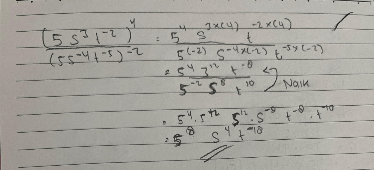 (5 s³ t⁻²)⁴ / (5s⁻⁴ t⁻⁵)⁻² = 5⁴ s³ˣ⁽⁴⁾ t⁻²ˣ⁽⁴⁾ / 5⁽⁻²⁾ s⁻⁴ˣ⁽⁻²⁾ t⁻⁵ˣ⁽⁻²⁾
= 5⁴ s¹² t⁻⁸ / 5⁻² s⁸ t¹⁰ Naik
= 5⁴ . 5⁺² s¹² . s⁻⁸ t⁻⁸ . t⁻¹⁰
= 5⁸ s⁴ t⁻¹⁸